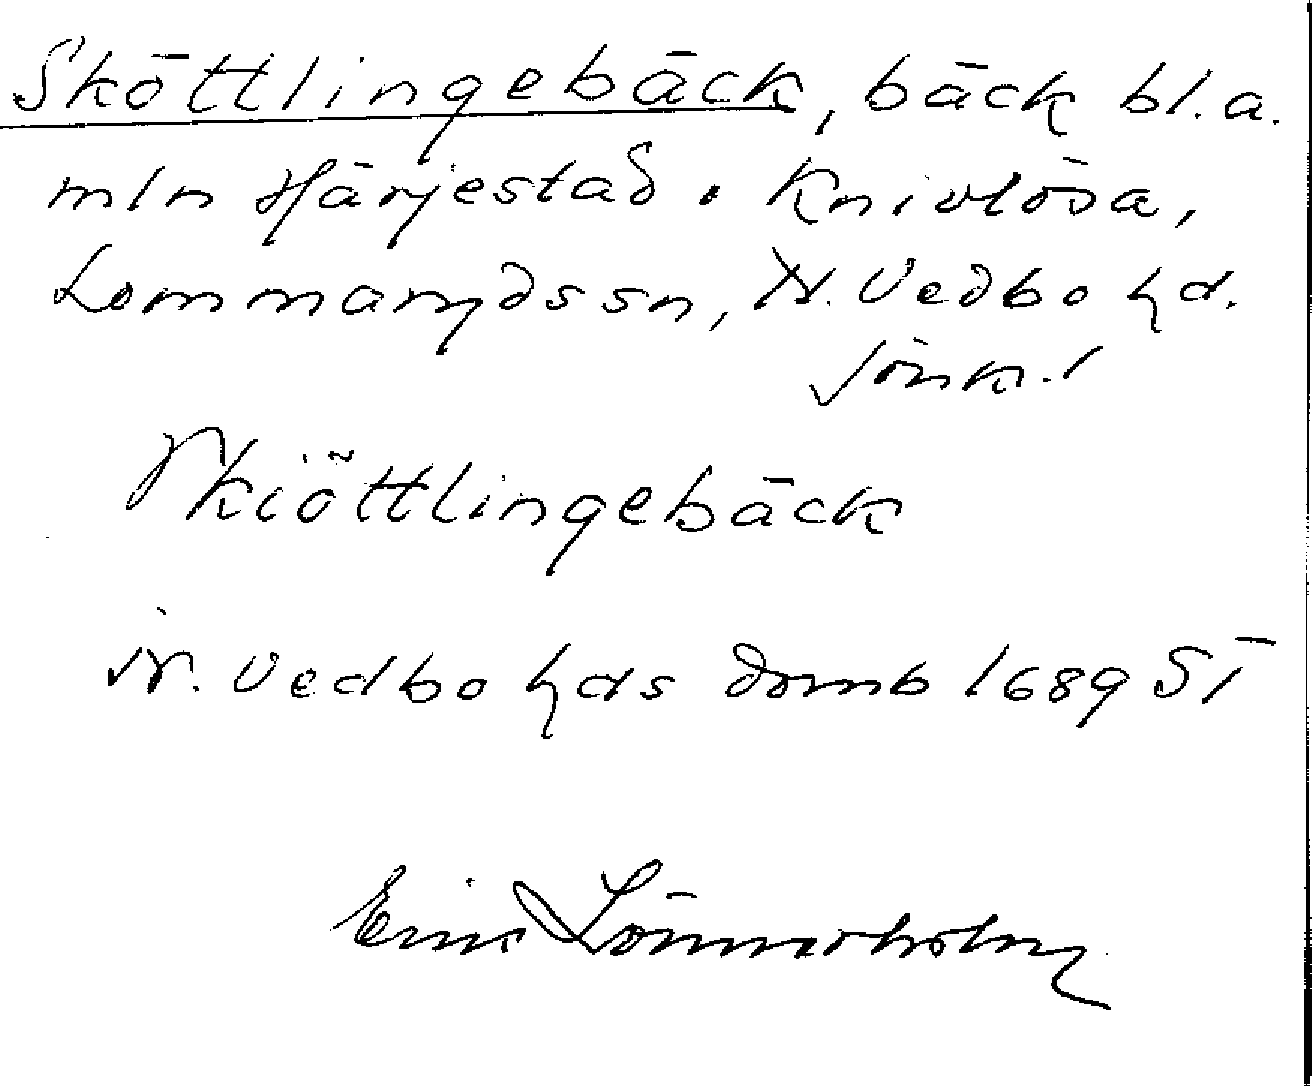 Sköttlingebäck, bäck bl.a.
mln Härjestad o Knivlösa,
Lommaryds sn, N. Vedbo hd.
Jönk. l
Skiöttlingebäck
N. Vedbo hds domb 1689 ST
Einar Lönnerholm